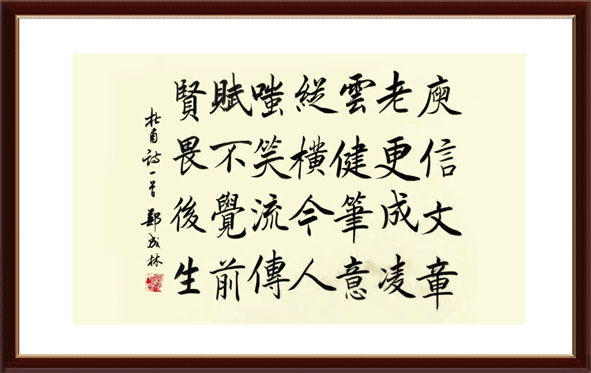 庾信文章
老更成凌
雲健筆意
縱橫今人
嗤笑流傳
賦不覺前
賢畏後生
杜甫詩一首 鄭成林